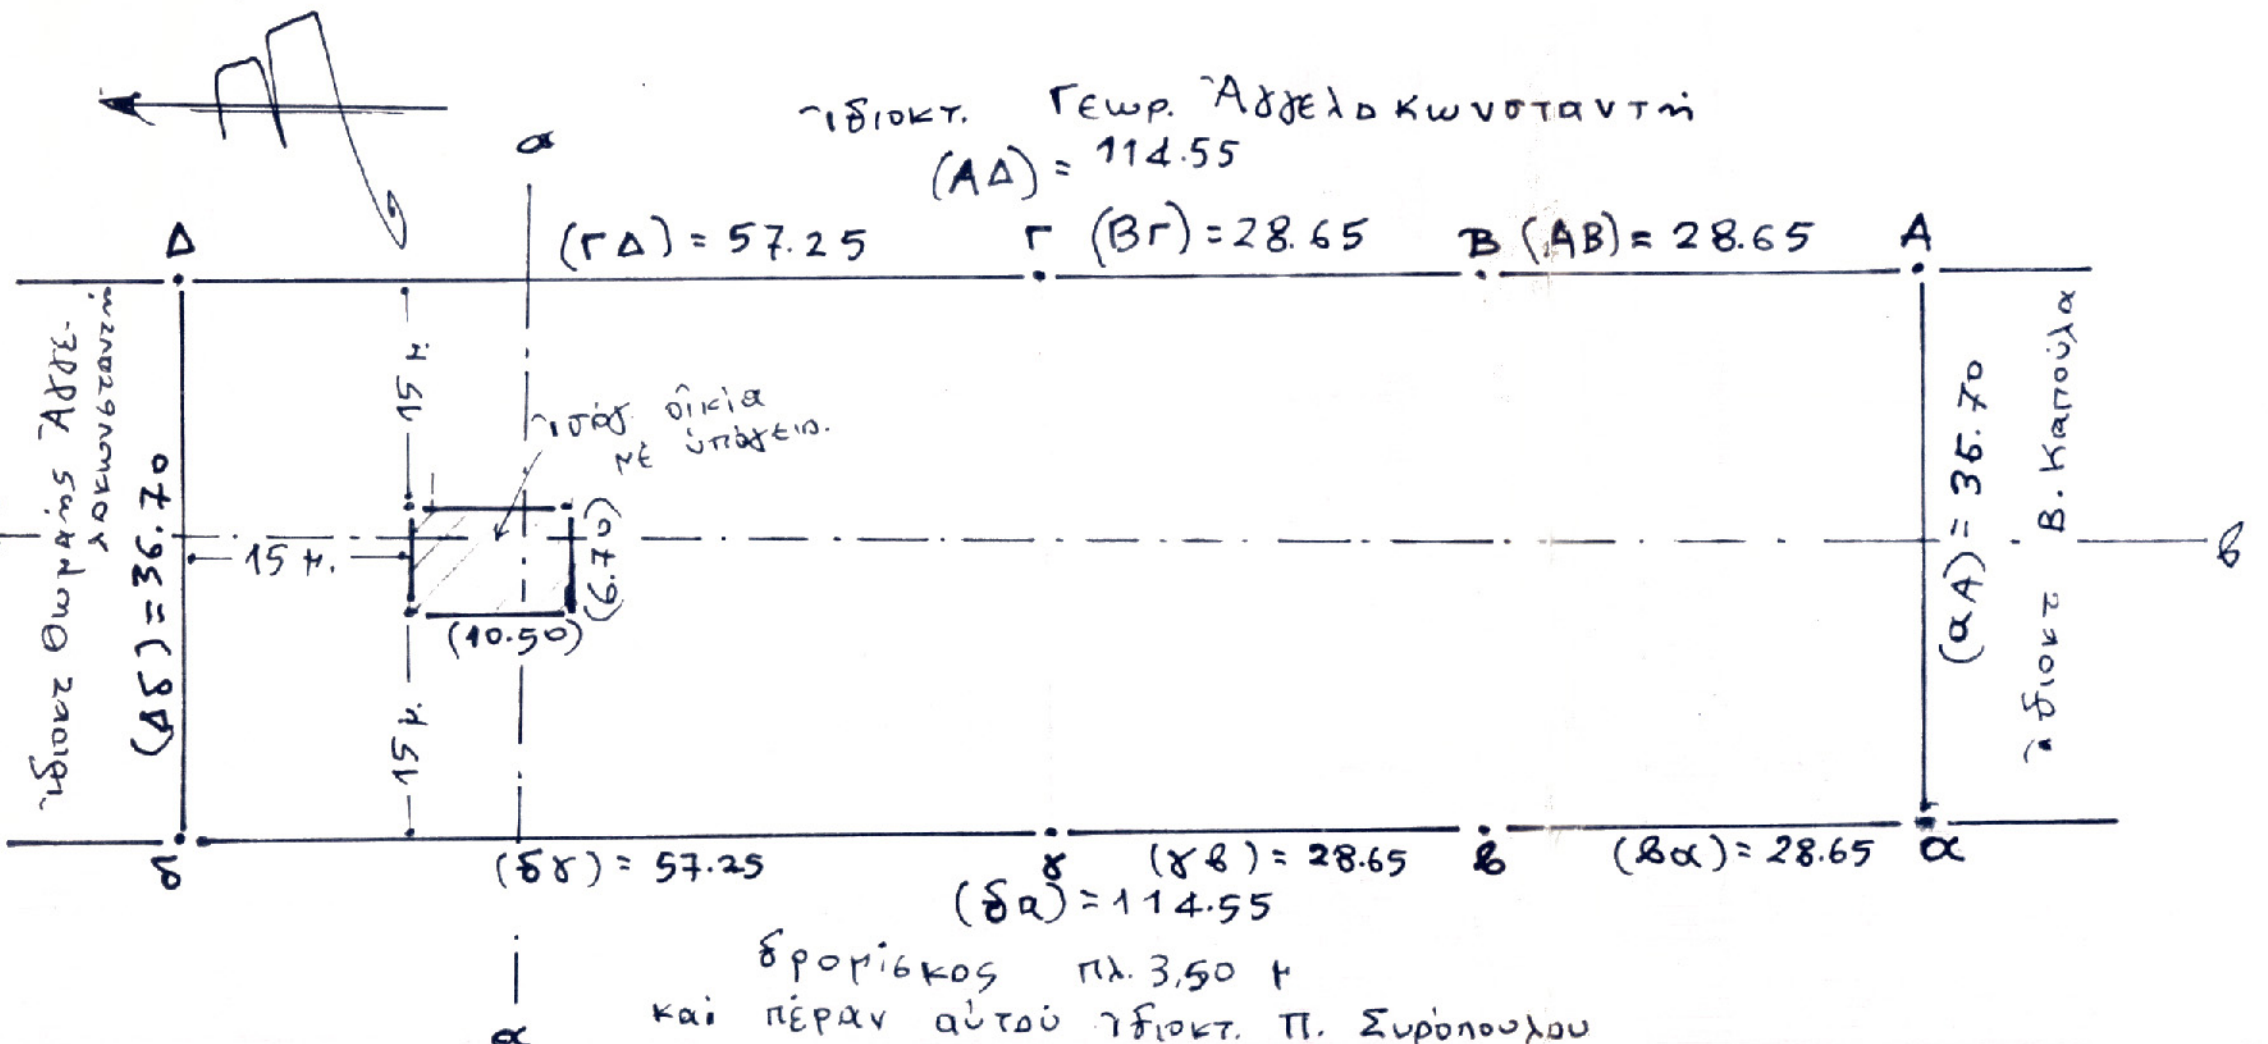 ἰδιοκτ. Γεωρ. Ἀγγελοκωνσταντή
(ΑΔ) = 114.55
α
Δ
(ΓΔ) = 57.25
Γ
(ΒΓ) = 28.65
Β
(ΑΒ) = 28.65
Α
ἰδιοκτ Θωμαής Ἀγγε-
λοκωνσταντή
(Δδ) = 36.70
15 μ.
ἰσόγ. οἰκία
μέ ὑπόγειο.
15 μ.
(6.70)
(10.50)
15 μ.
(αΑ) = 36.70
ἰδιοκτ Β. Καπούλα
β
δ
(δγ) = 57.25
γ
(γβ) = 28.65
β
(βα) = 28.65
α
(δα) = 114.55
δρομίσκος πλ. 3,50 μ
καί πέραν αὐτοῦ ἰδιοκτ. Π. Συρόπουλου
α